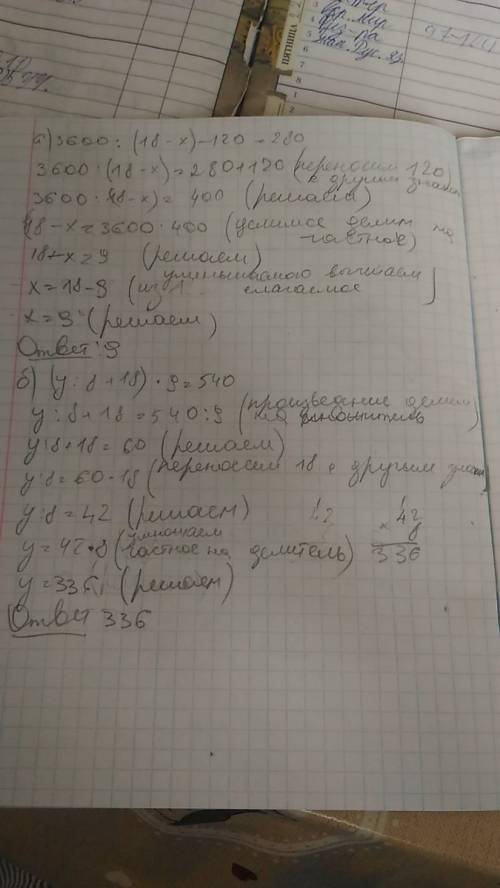 ПЯТНИЦА
а) 3600 : (18 - x) - 120 = 280
3600 : (18 - x) = 280 + 120 (переносим 120
с другим знаком)
3600 : (18 - x) = 400 (решаем)
18 - x = 3600 : 400 (делимое делим на
частное)
18 - x = 9 (решаем)
x = 18 - 9 (из уменьшаемого вычитаем
слагаемое)
x = 9 (решаем)
Ответ: 9
б) (y : 8 + 18) · 9 = 540
y : 8 + 18 = 540 : 9 (произведение делим
на множитель)
y : 8 + 18 = 60 (решаем)
y : 8 = 60 - 18 (переносим 18 с другим знаком)
y : 8 = 42 (решаем)
y = 42 · 8 (умножаем
частное на делитель)
42
× 8
336
y = 336 (решаем)
Ответ 336